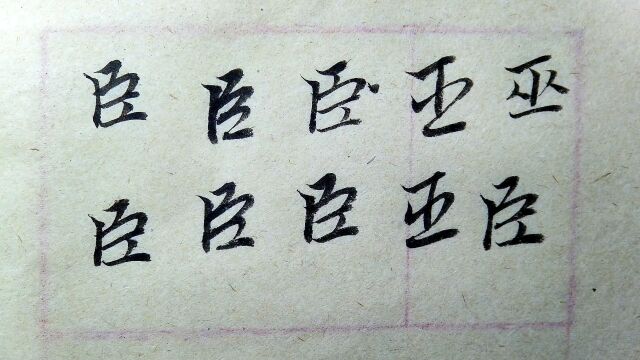 臣臣臣巫
臣臣臣臣